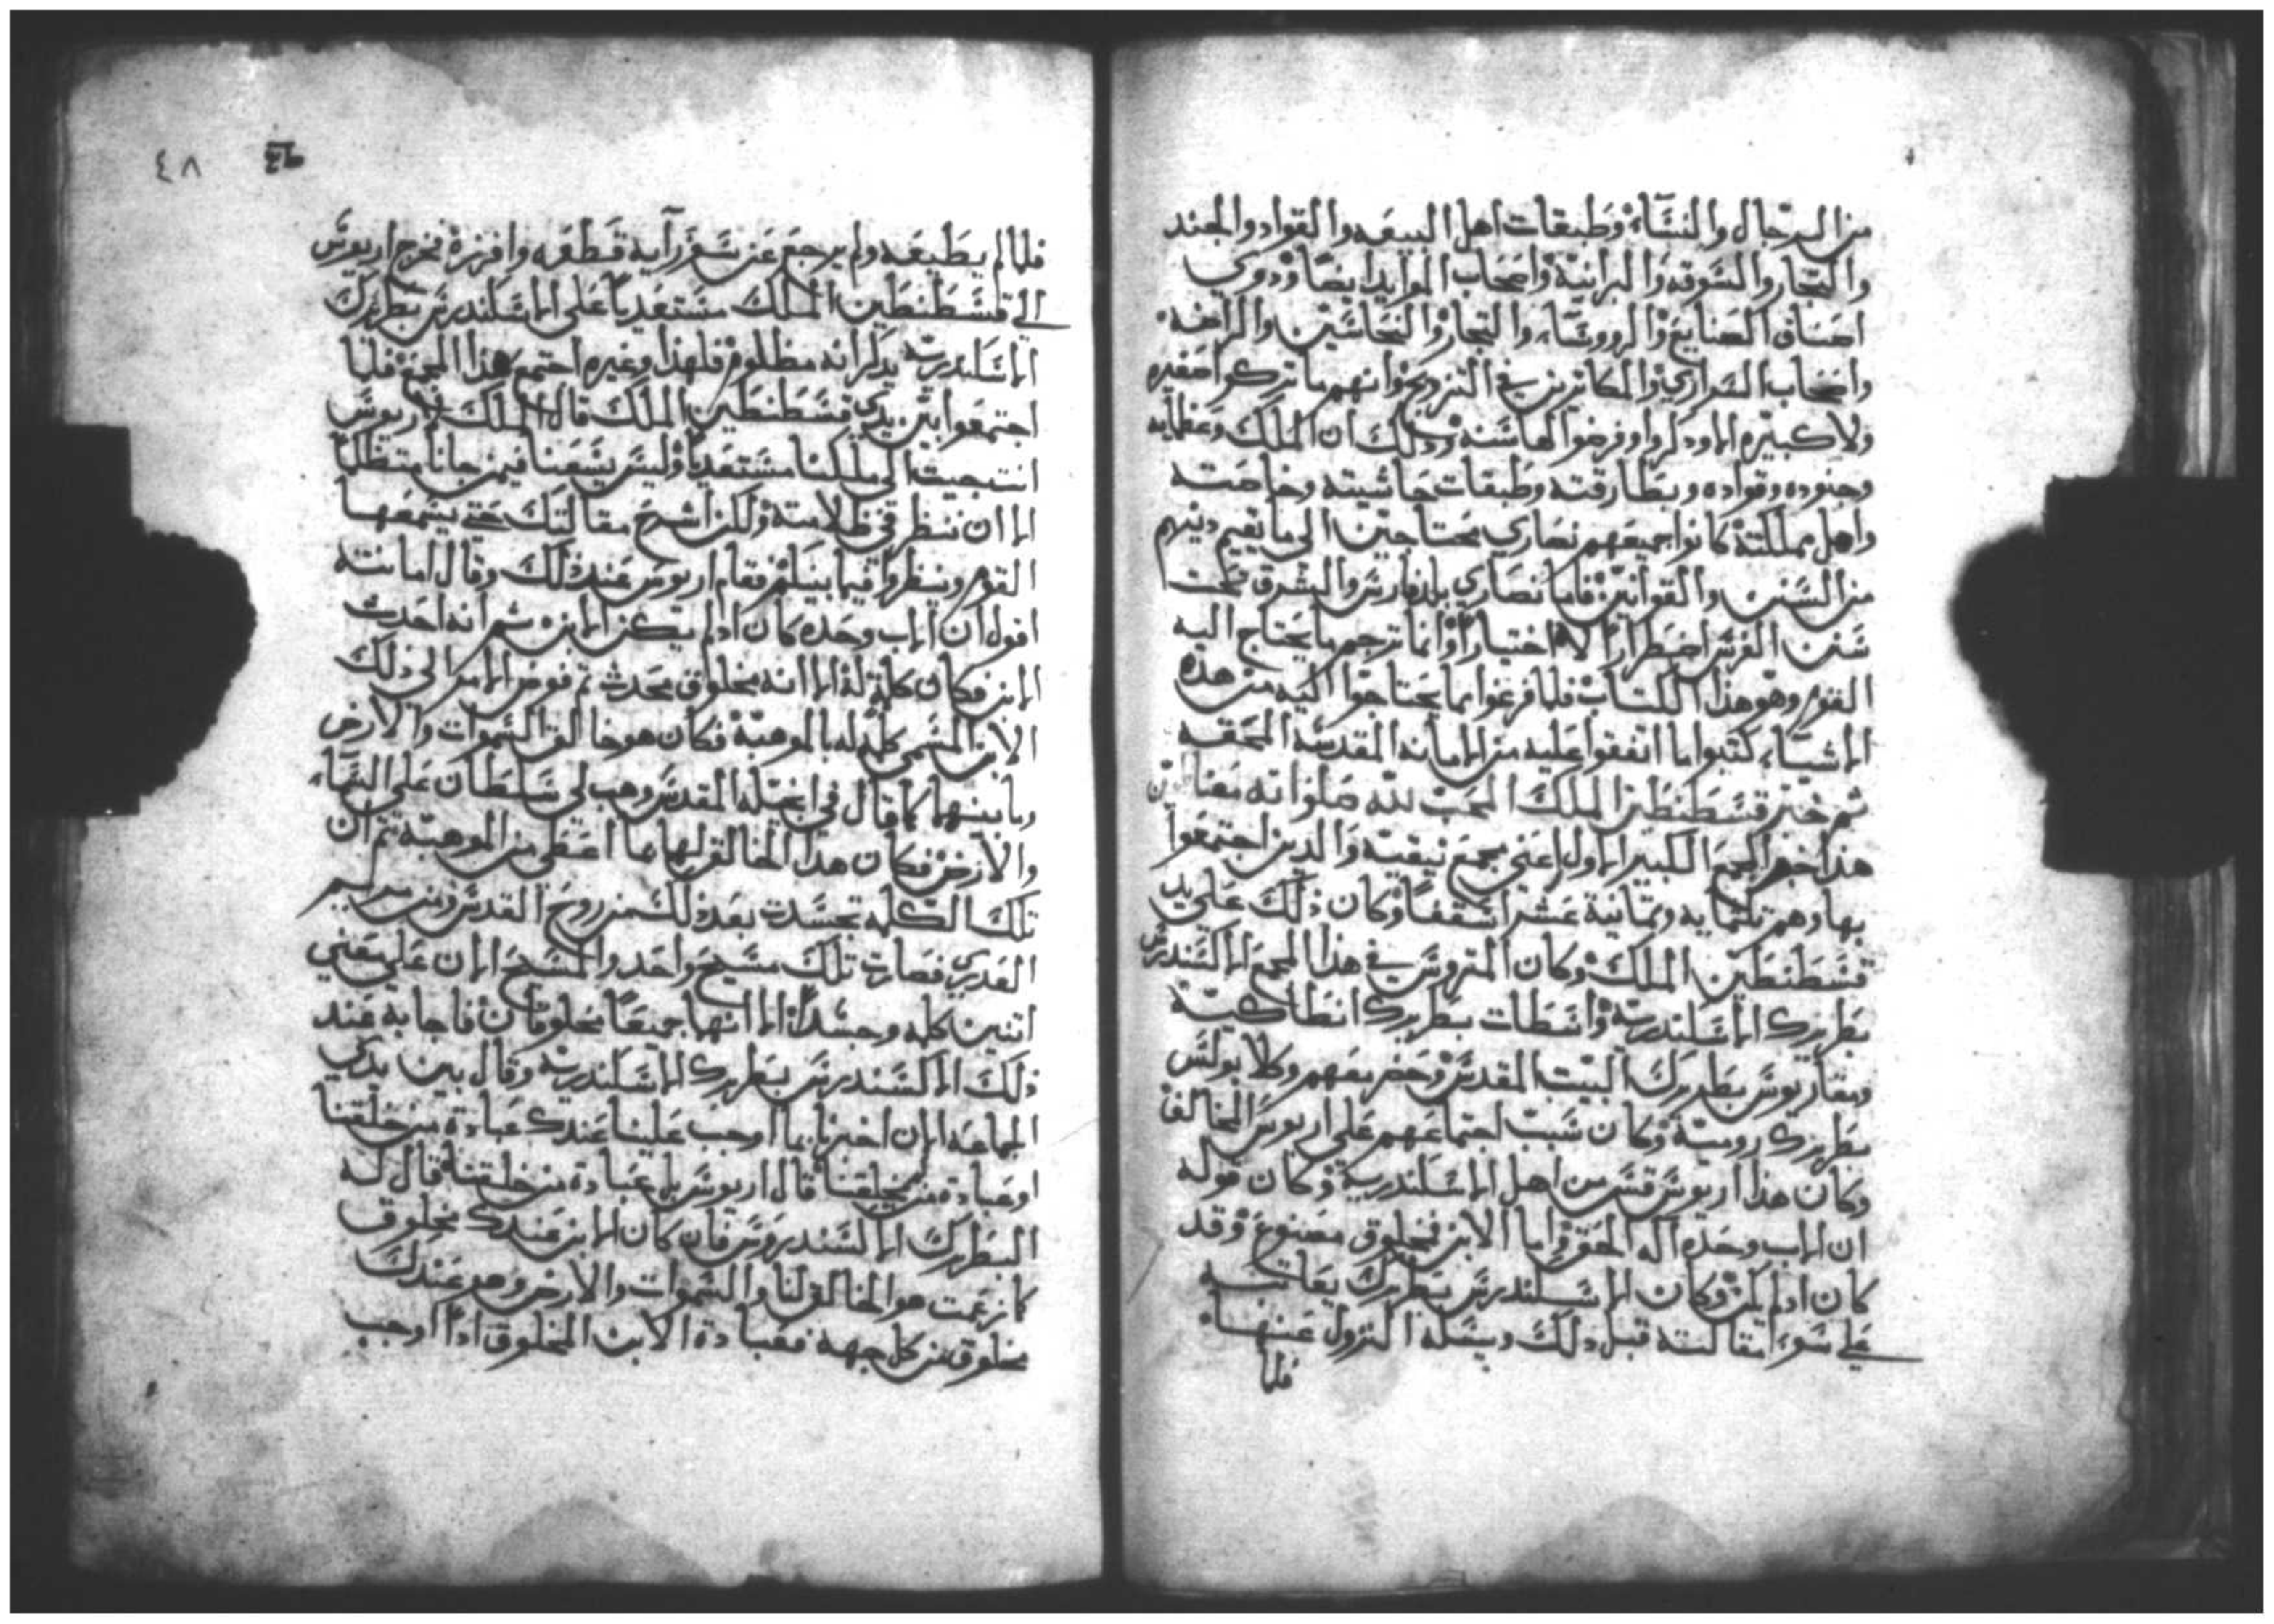 من الرجال والنسآء وطبقات اهل البيعه والقواد والجند
والتجار والسوقه والبرانية واصحاب الموايد ايضا ودوي
اصناف الصنايع والرووسآء والتجار والنخاسين والراضه
واصحاب السراري والمكاترين في التزويج وانهم ما تركوا صغيره
ولا كبيره الا وذكروا وفرضوا لها سنه وذلك ان الملك وعظمايه
وجنوده وقواده وبطارقته وطبقات حاشيته وخاصته
واهل مملكته كانوا جميعهم نصاري محتاجين الي ما يقيم دينهم
من السنن والقوانين فاما نصاري بلد فارس والشرق تحت
سنن الفرس اضطرارا لا اختيارا وانما ترجم ما يحتاج اليه
القوم وهو هذا الكتاب فلما فرغوا مما يحتاجوا اليه من هذه
الاشيآء كتبوا ما اتفقوا عليه من الامانه المقدسه المحقه
ثم خبر قسطنطين الملك المحب لله صلواته معنا امين
هذا خبر المجمع الكبير الاول اعني مجمع نيقيه والدين اجتمعوا
بها وهم تلتمايه وتمانية عشر اسقفا وكان ذلك علي يد
قسطنطين الملك وكان المتروس في هذا المجمع الاكسندرس
بطريرك الاسكندرية واسطات بطريرك انطاكية
ومقاريوس بطريرك البيت المقدس وحضر معهم وكلا يولس
بطريرك رومية وكان سبب اجتماعهم علي اريوس المخالف
وكان هذا اريوس قس من اهل الاسكندرية وكان قوله
ان الاب وحده اله الحق واما الابن فمخلوق مصنوع وقد
كان اد لم يكن وكان الاسكندرس بطريرك يعاتبه
علي سوء مقالته قبل دلك ويسله النزول عنها
فلما
٤٨
فلما لم يطيعه ولم يرجع عن سو رآيه قطعه وافرزه فخرج اريوس
الي قسطنطين الملك مستعديا علي الاسكندرس بطريرك
الاسكندرية يدكر انه مظلوم فلهذا وغيره اجتمع هذا المجمع فلما
اجتمعوا بين يدي قسطنطين الملك قال الملك لاريوس
انت جيت الي ملكنا مستعديا وليس يسعنا فيمن جانا متظلما
الا ان ننظر في ظلامته ولكن اشرح مقالتك حتي يسمعها
القوم وينظروا فيما بينكم فقام اريوس عند ذلك وقال اما انه
اقول ان الاب وحده كان اد لم يكن الابن ثم انه احدث
الابن فكان كلمة له الا انه مخلوق محدث ثم فوض الامر الي ذلك
الابن المسمي كلمة له بالموهبة فكان هو خالق السموات والارض
وما بينهما كما قال في انجيله المقدس وهب لي سلطان علي السمآء
والارض فكان هدا الخالق لهما بما اعطي من الموهبة ثم ان
تلك الكلمه تجسدت بعد ذلك من روح القدس ومن مريم
العدري فصارت تلك مسيح واحد والمسيح الان علي معني
اتنين كلمه وجسد الا انهما جميعا مخلوقان فاجابه عند
ذلك الاكسندرس بطريرك الاسكندرية وقال بين يدي
الجماعه الان اخبرنا بما اوجب علينا عندك عبادة من خلقنا
او عبادة من لم يخلقنا قال اريوس بل عبادة من خلقنا قال له
البطريرك الاكسندروس فان كان الابن عندك مخلوق
كما زعمت هو الخالق لنا والسموات والارض وهو عندك
مخلوق من كل جهه فعبادة الابن المخلوق اداً اوجب